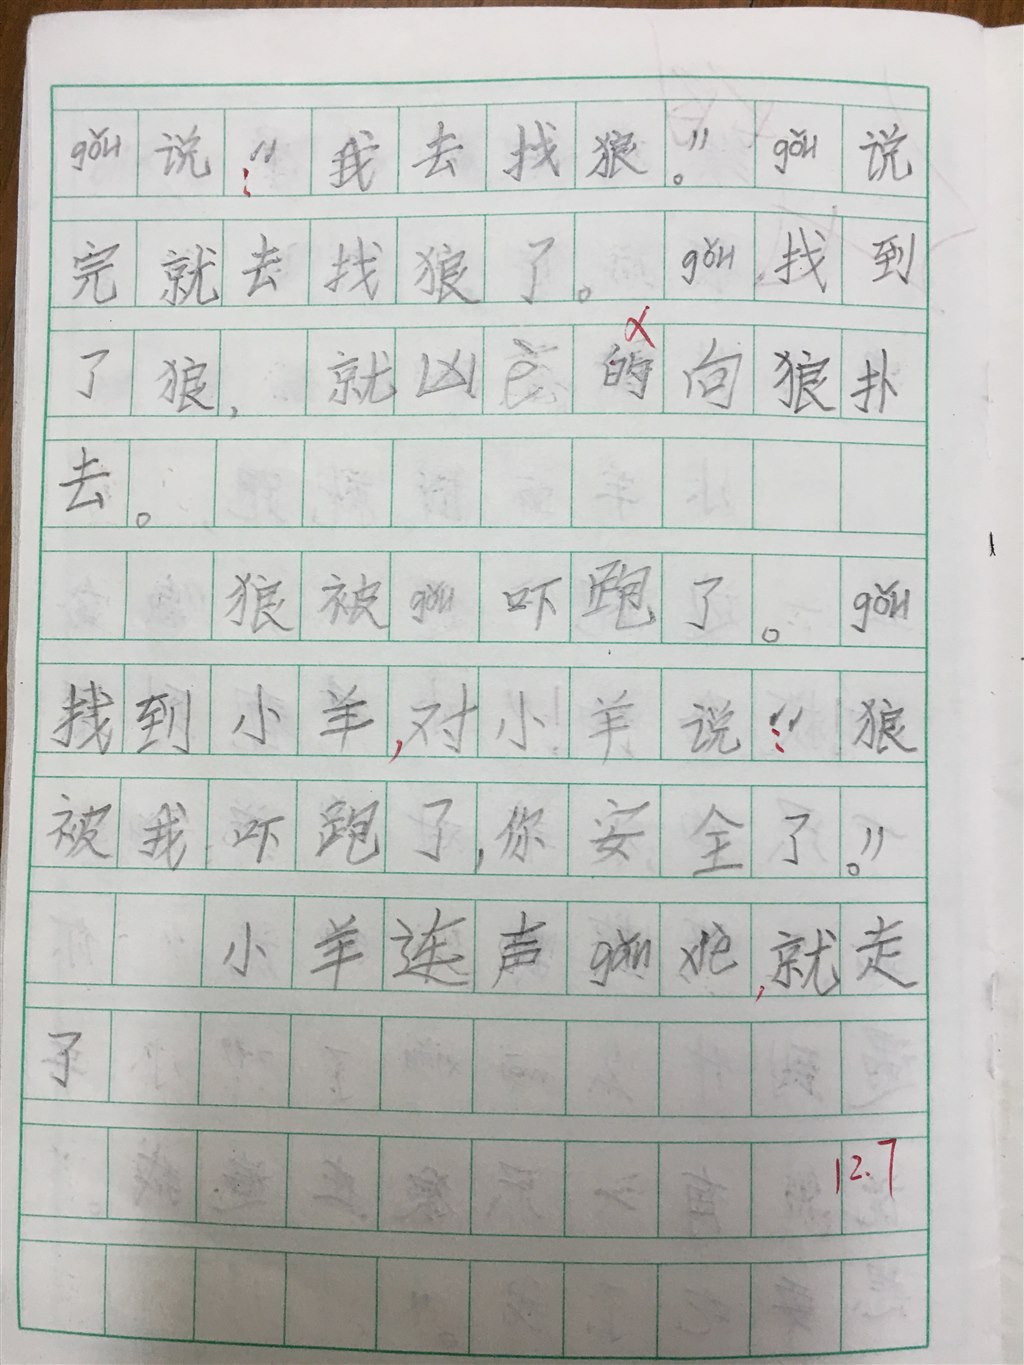 gǒu说：“我去找狼。”gǒu说
完就去找狼了。gǒu找到
了狼，就凶è的向狼扑
去。
狼被gǒu吓跑了。gǒu
找到小羊，对小羊说：“狼
被我吓跑了，你安全了。”
小羊连声gǎn xiè，就走
了
12.7